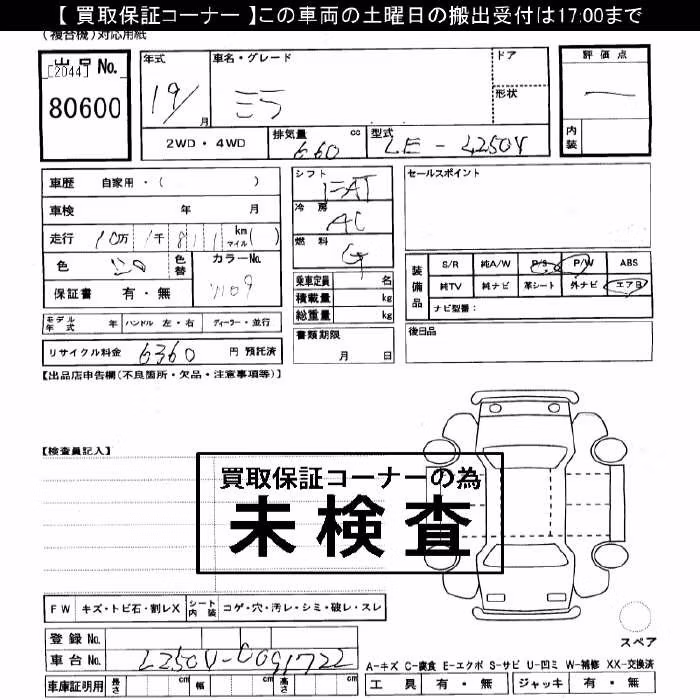 【 買取保証コーナー 】この車両の土曜日の搬出受付は17:00まで
(複合機)対応用紙
出品 No.
[2044]
80600
年式
19/
月
車名・グレード
ミラ
ドア
形状
評価点
内装
2WD・4WD
排気量 cc
660
型式
LE-L250V
車歴 自家用・( )
車検 年 月
走行 10万 1千 811 km マイル( )
色
色替
カラーNo.
保証書 有・無
シフト
冷房
AC
燃料
G
セールスポイント
乗車定員 名
積載量 kg
総重量 kg
装備品
S/R 純A/W P/S P/W ABS
純TV 純ナビ 革シート 外ナビ エアB
ナビ型番:
モデル年式 年 ハンドル 左・右 ディーラー・並行
書類期限
月 日
後日品
リサイクル料金 6360 円 預託済
【出品店申告欄(不良箇所・欠品・注意事項等)】
【検査員記入】
買取保証コーナーの為
未検査
FW キズ・トビ石・割レX シート内装 コゲ・穴・汚レ・シミ・破レ・スレ
スペア
登録 No.
車台 No. L250V-0091722
A-キズ C-腐食 E-エクボ S-サビ U-凹ミ W-補修 XX-交換済
車庫証明用 長さ cm 幅 cm 高さ cm
工具 有・無 ジャッキ 有・無